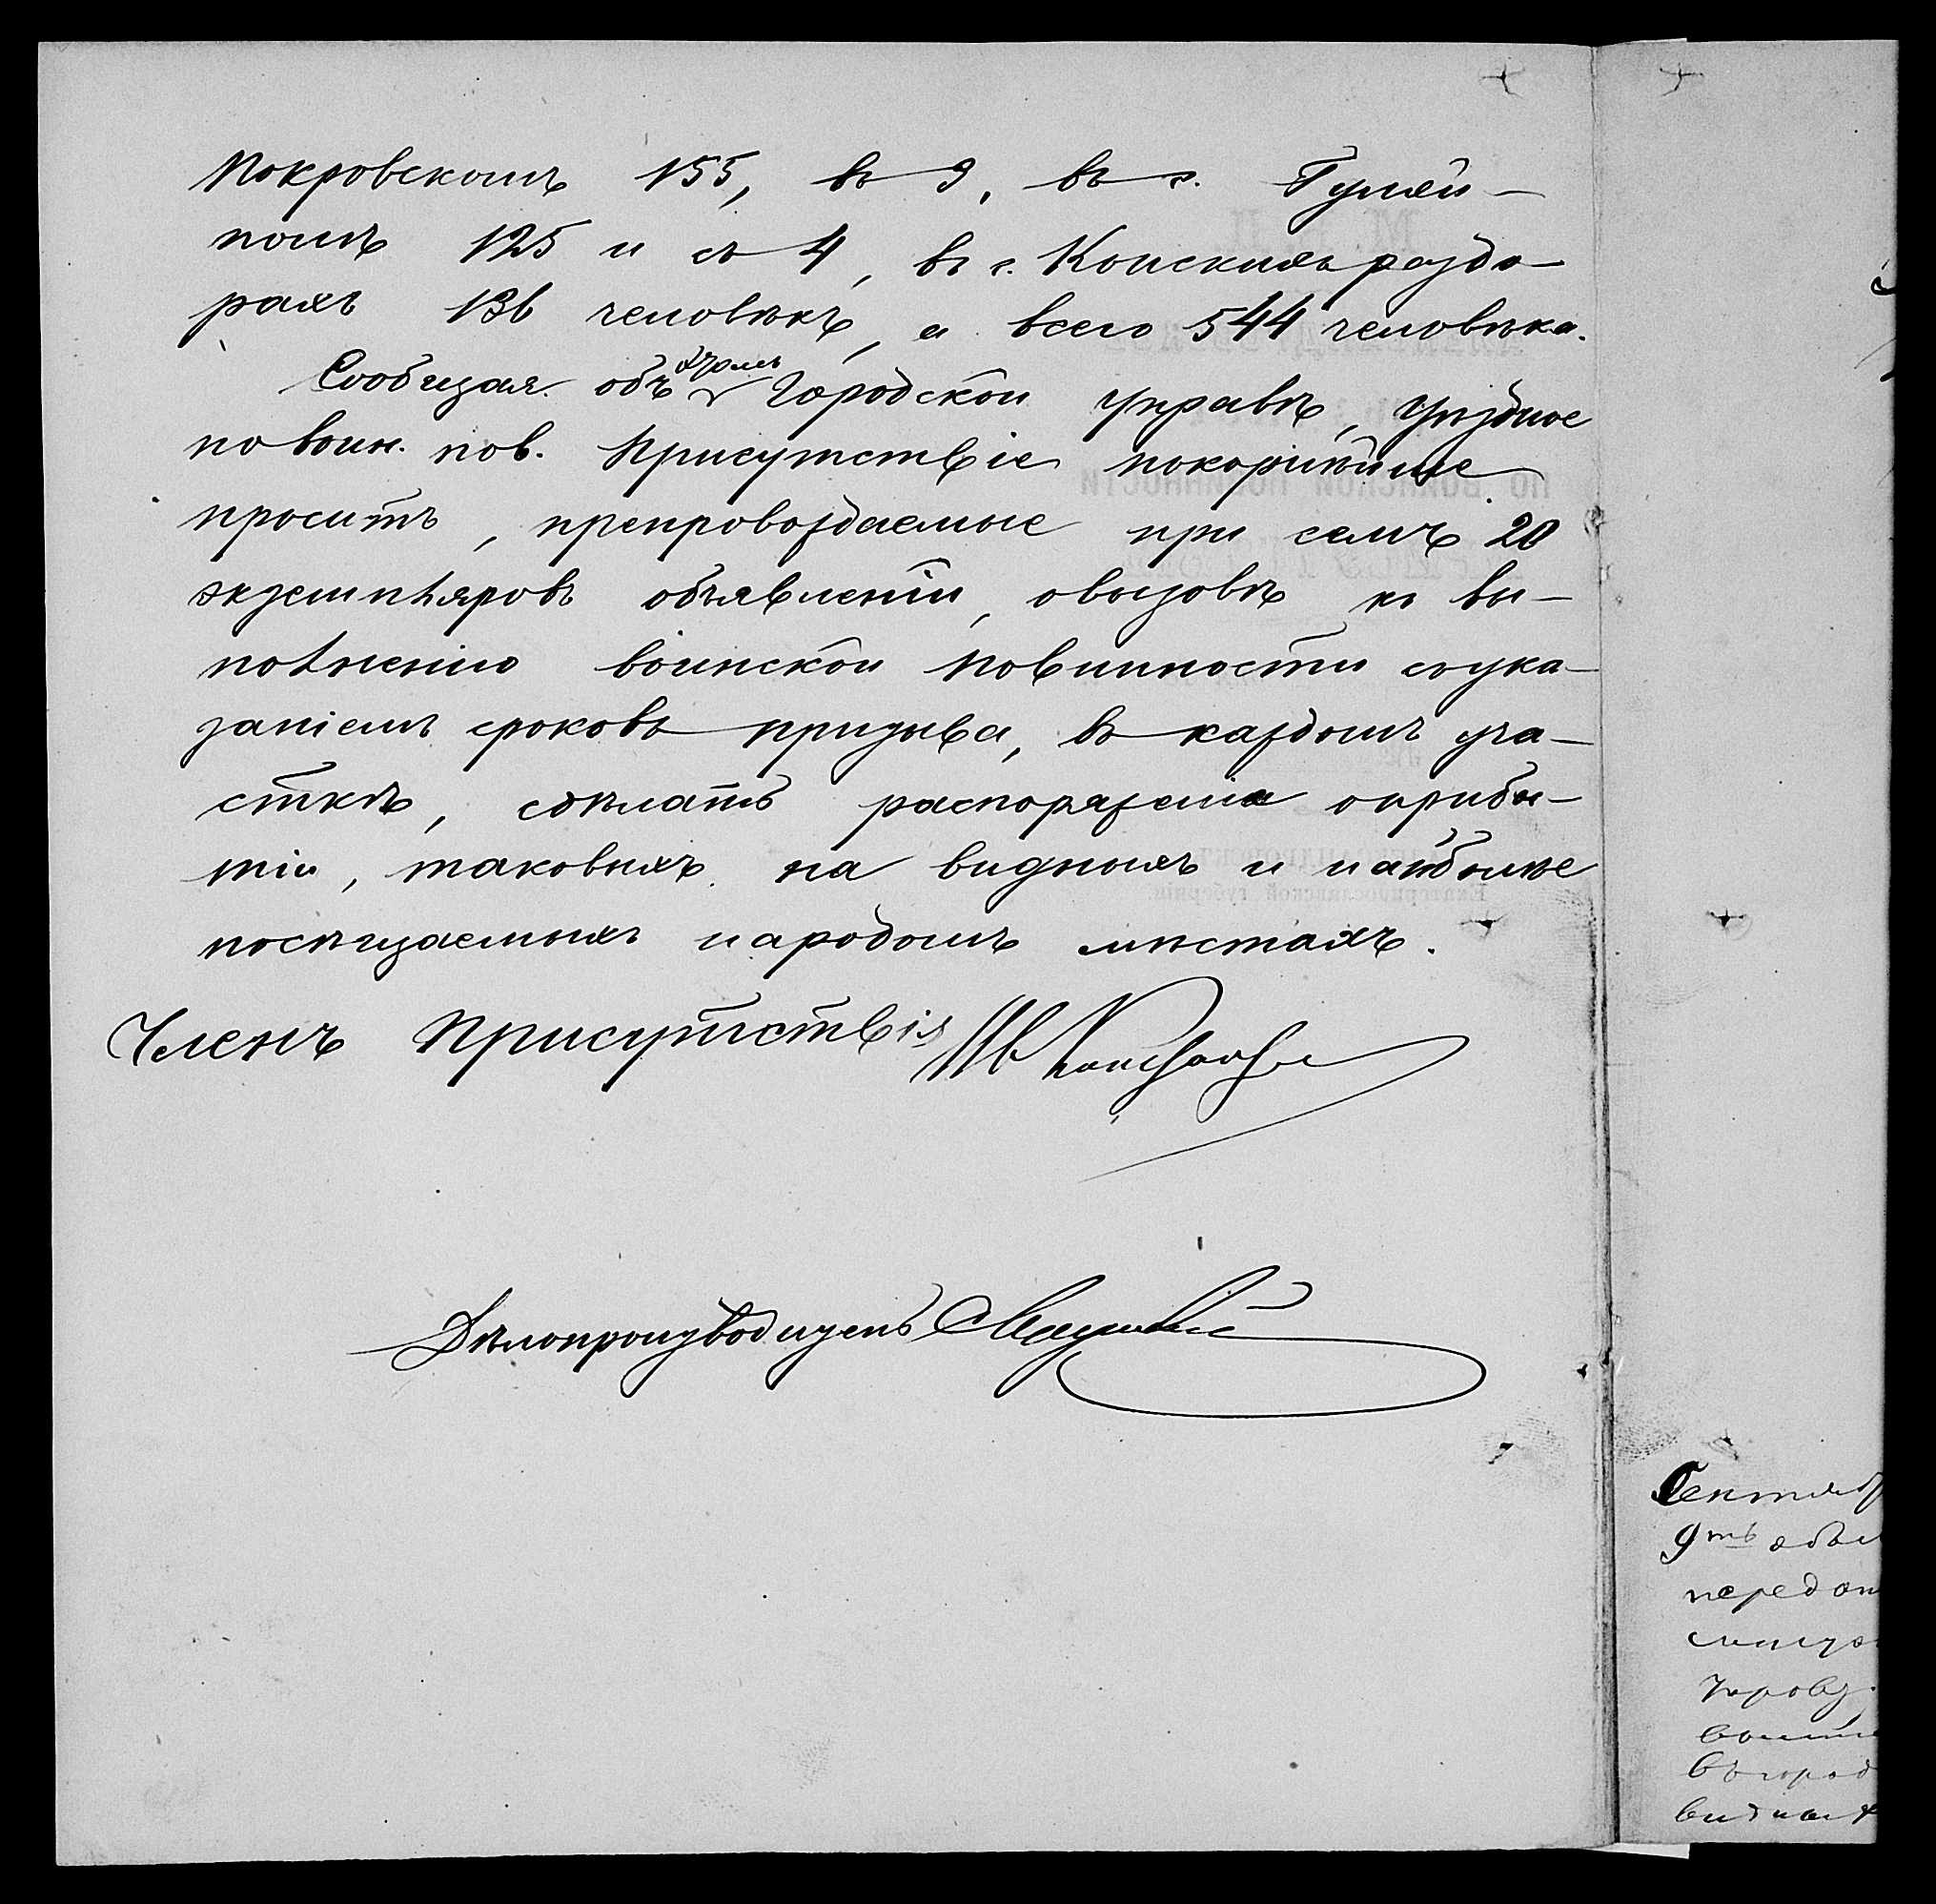 Покровскомъ 155, въ 3, въ с. Гуляй-
полѣ 125 и въ 4, въ с. Конскихъ раздо-
рахъ 136 человѣкъ, а всего 544 человѣка.
Сообщая объ этомъ Городской Управѣ, Уѣздное
по воин. пов. Присутствіе покорнѣйше
проситъ, препровождаемые при семъ 20
экземпляровъ объявленій, овызовѣ къ вы-
полненію воинской повинности съука-
заніемъ сроковъ призыва, въ каждомъ уча-
сткѣ, сдѣлать распоряженіе оприби-
тіи, таковыхъ на видныхъ и наиболѣе
посѣщаемыхъ народомъ мѣстахъ.
Членъ Присутствія
Дѣлопроизводитель
ПО ВОИНСКОЙ ПОВИННОСТИ
Екатеринославской губерніи
Сентябр
9
передан
въ город
видных